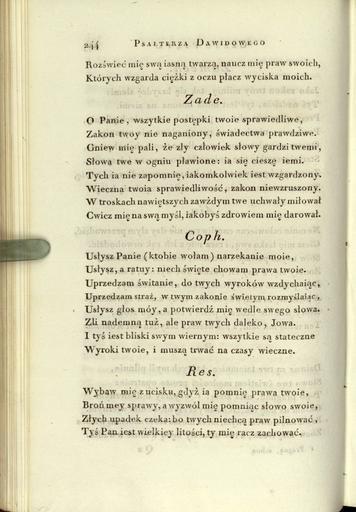 244 PSAŁTERZA DAWIDOWEGO
Rozświeć mię swą iasną twarzą, naucz mię praw swoich,
Których wzgarda ciężki z oczu płacz wyciska moich.
Zade.
O Panie, wszytkie postępki twoie sprawiedliwe,
Zakon twoy nie naganiony, świadectwa prawdziwe.
Gniew mię pali, że zły człowiek słowy gardzi twemi,
Słowa twe w ogniu pławione: ia się cieszę iemi.
Tych ia nie zapomnię, iakomkolwiek iest wzgardzony.
Wieczna twoia sprawiedliwość, zakon niewzruszony.
W troskach nawiętszych zawżdym twe uchwały miłował
Cwicz mię na swą myśl, iakobyś zdrowiem mię darował.
Coph.
Usłysz Panie (ktobie wołam) narzekanie moie,
Usłysz, a ratuy: niech święte chowam prawa twoie.
Uprzedzam świtanie, do twych wyroków wzdychaiąc,
Uprzedzam straż, w twym zakonie świetym rozmyślaiąc,
Usłysz głos móy, a potwierdź mię wedle swego słowa.
Zli nademną tuż, ale praw twych daleko, Jowa.
I tyś iest bliski swym wiernym: wszytkie są stateczne
Wyroki twoie, i muszą trwać na czasy wieczne.
Res.
Wybaw mię z ucisku, gdyż ia pomnię prawa twoie,
Broń mey sprawy, a wyzwól mię pomniąc słowo swoie,
Złych upadek czeka: bo twych niechcą praw pilnować,
Tyś Pan iest wielkiey litości, ty mię racz zachować.